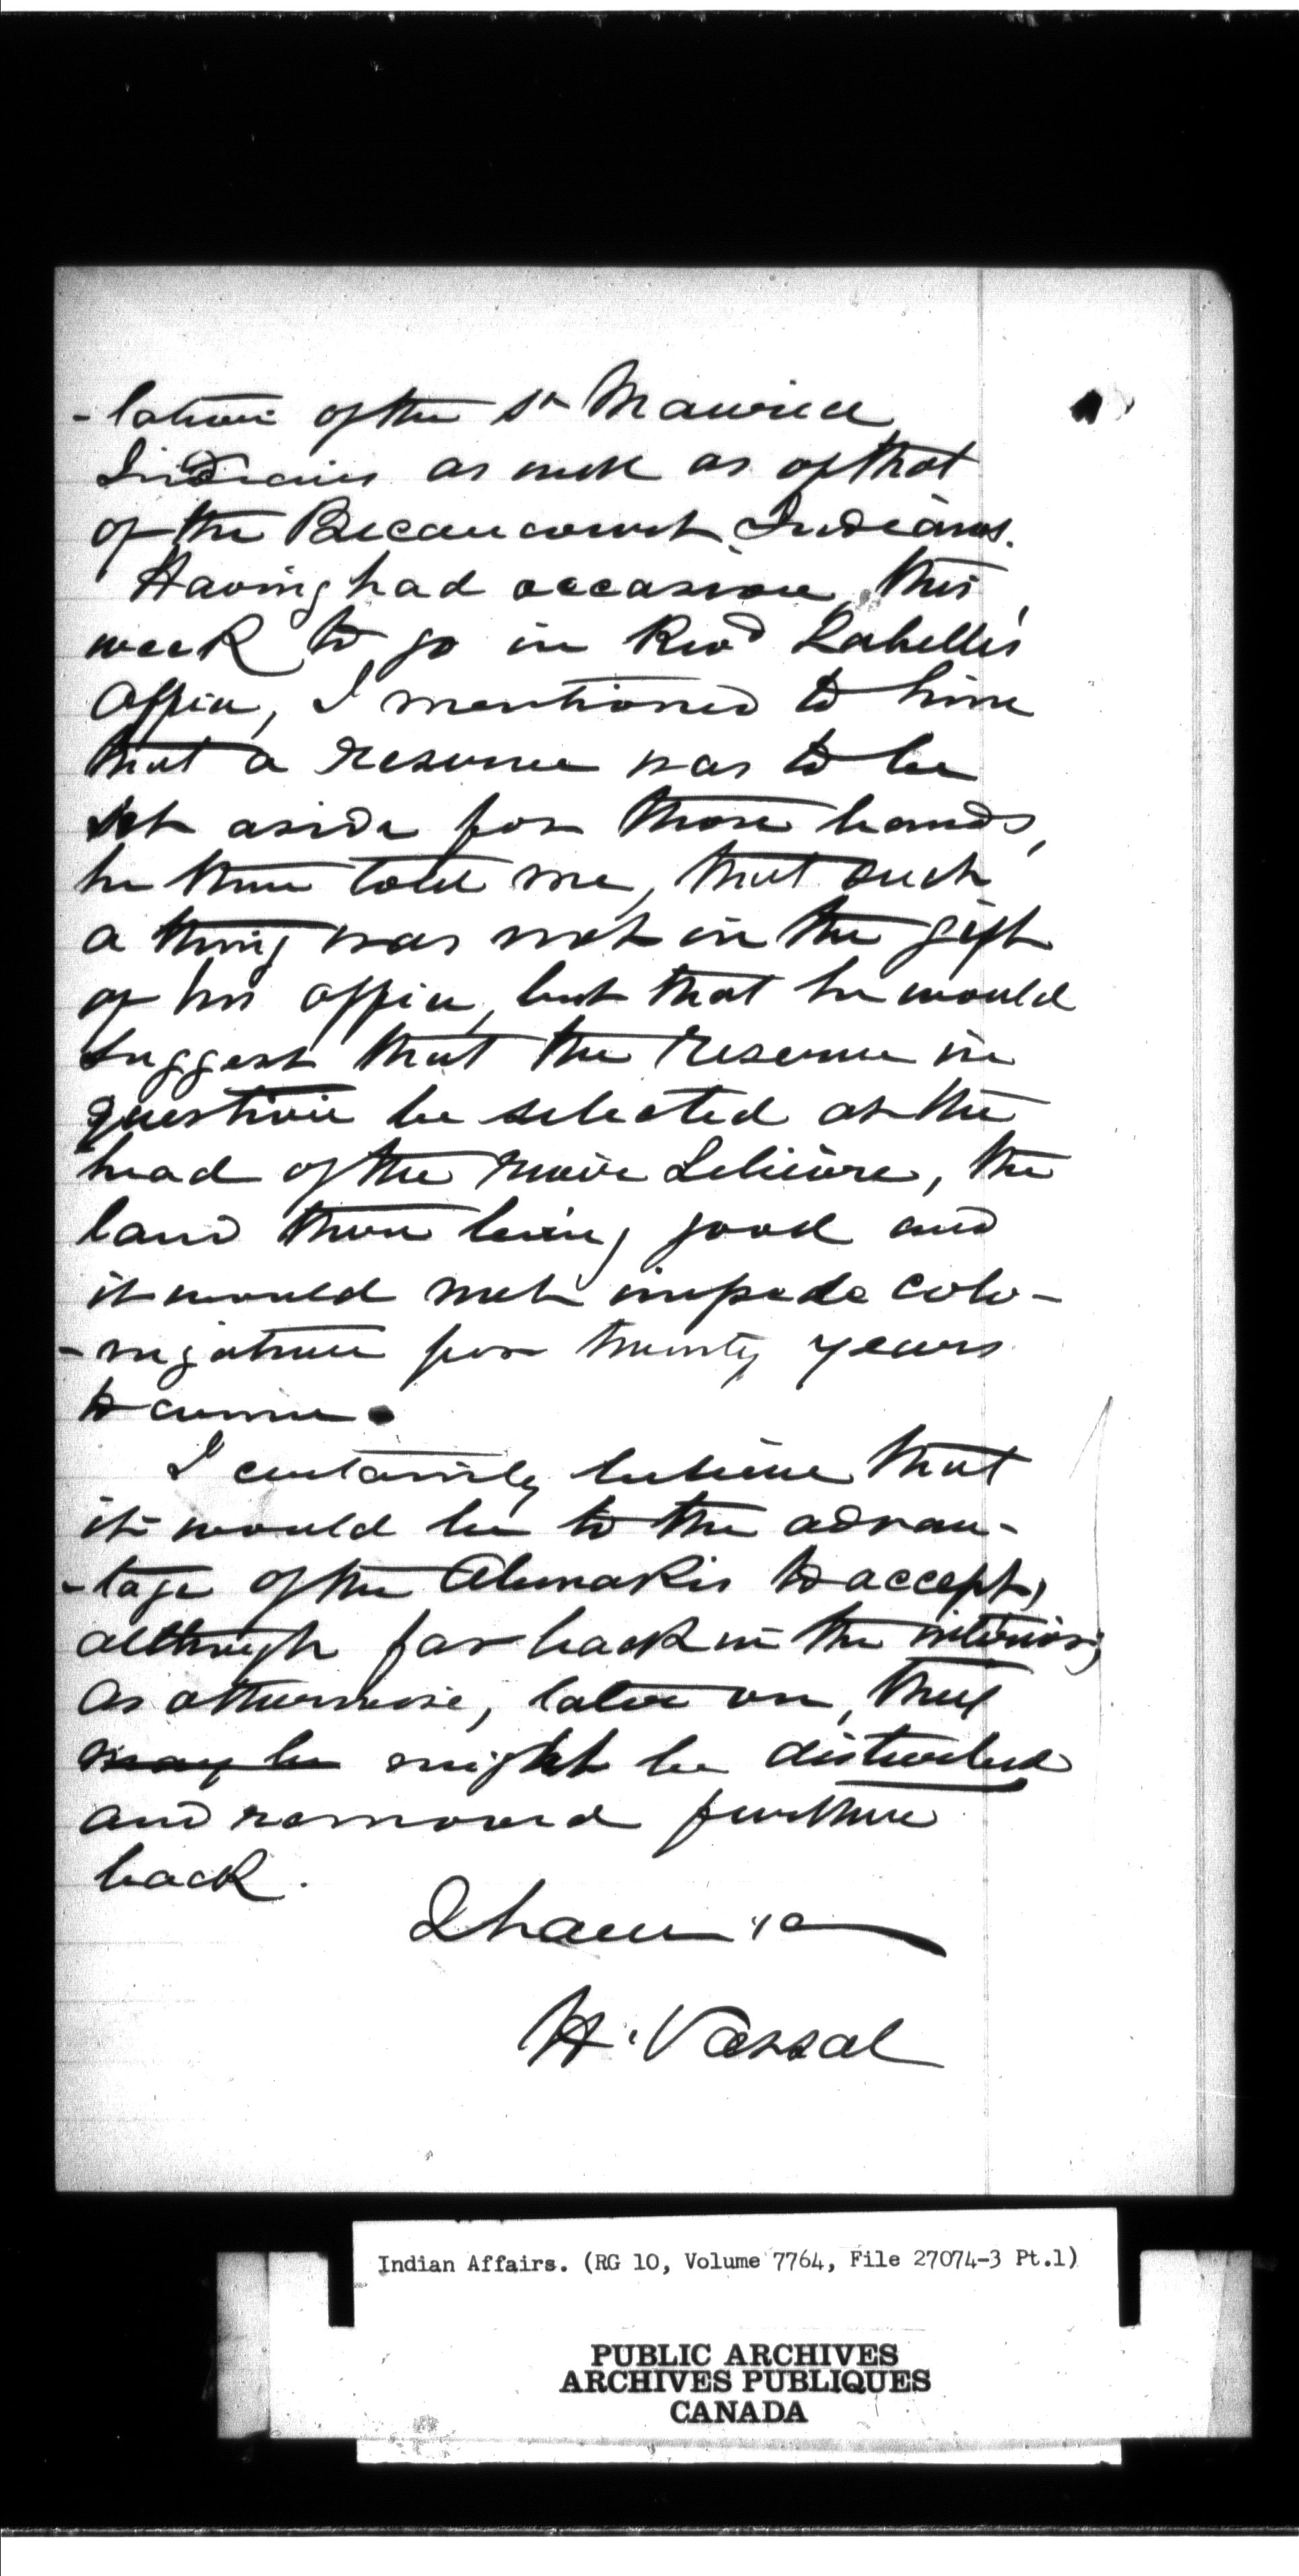 -lation of the St Maurice
Indians as well as of that
of the Becancourt Indians.
Having had occasion this
week to go in Revd Labelle's
office, I mentioned to him
that a reserve was to be
set aside for those bands,
he then told me, that such
a thing was not in the gift
of his office, but that he would
suggest that the reserve in
question be selected at the
head of the river Lelièvre, the
land there being good and
it would not impede colo-
-nization for twenty years
to come.
I certainly believe that
it would be to the advan-
-tage of the Abenakis to accept,
although far back in the interior;
as otherwise, later on, they
may be might be disturbed
and removed further
back.
I have &c
H. Vassal
Indian Affairs. (RG 10, Volume 7764, File 27074-3 Pt.1)
PUBLIC ARCHIVES
ARCHIVES PUBLIQUES
CANADA